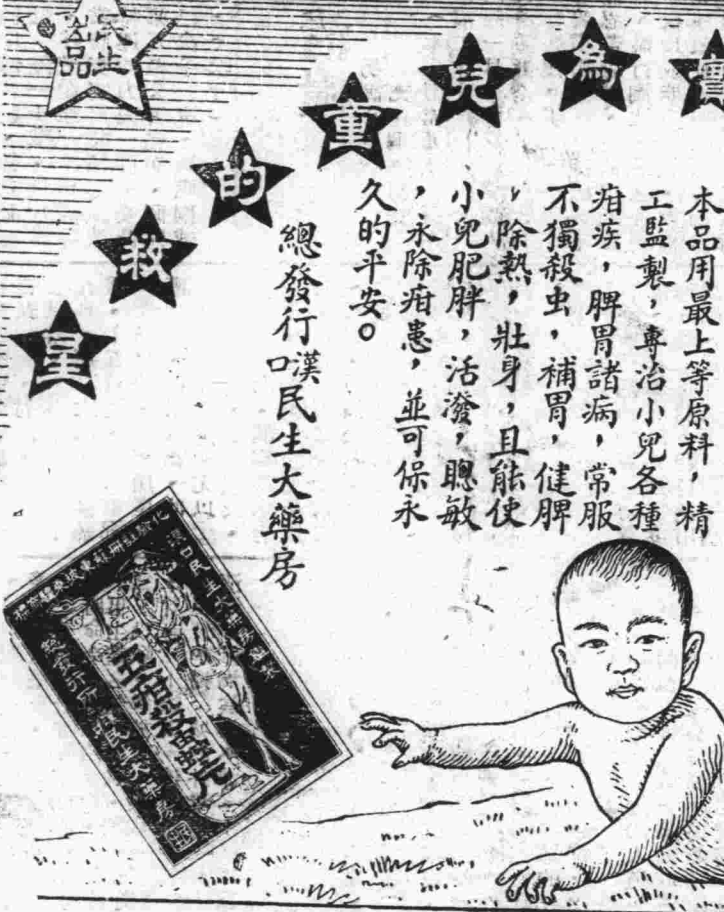 民生
出品
實為兒童的救星
本品用最上等原料，精
工監製，專治小兒各種
疳疾，脾胃諸病，常服
不獨殺虫，補胃，健脾
，除熱，壯身，且能使
小兒肥胖，活潑，聰敏
，永除疳患，並可保永
久的平安。
總發行漢口民生大藥房
漢口民生大藥房
五疳殺虫
總發行所漢口民生大藥房